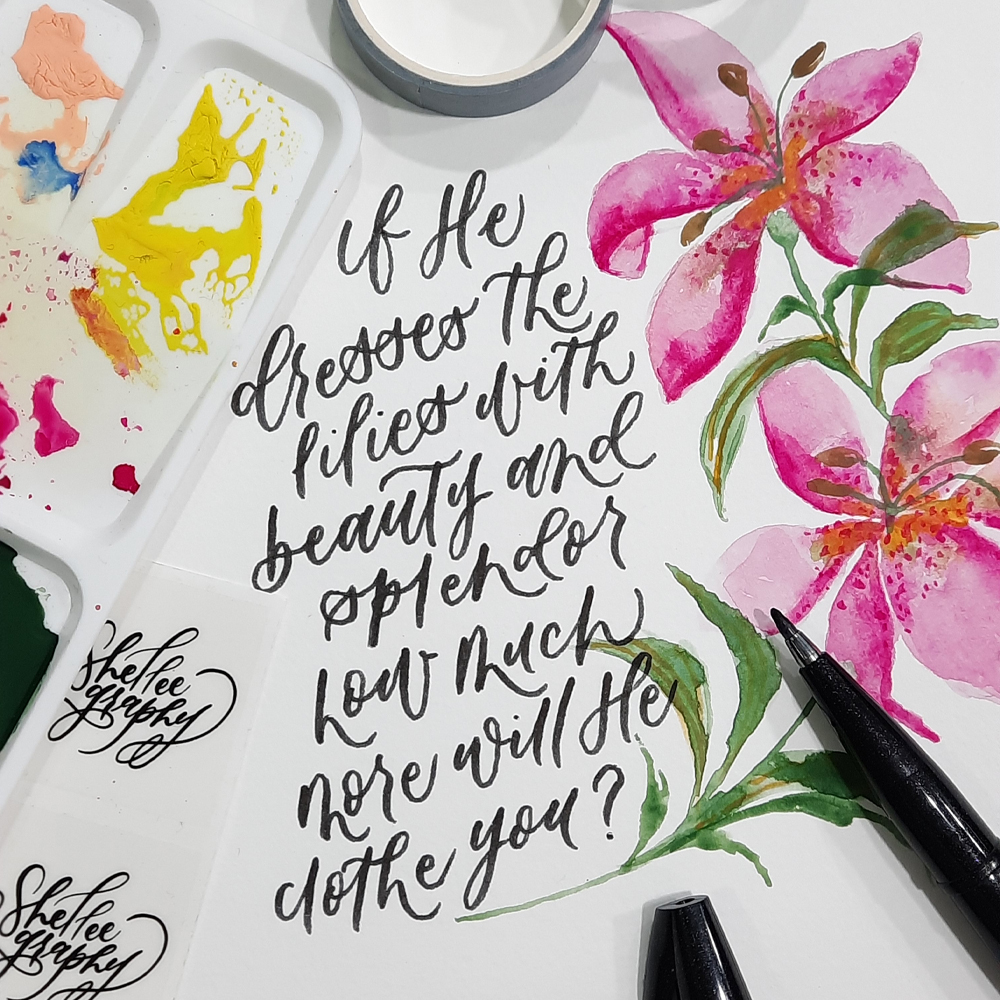 if He
dresses the
lilies with
beauty and
splendor
how much
more will He
clothe you?
Shellee
graphy
Shellee
graphy